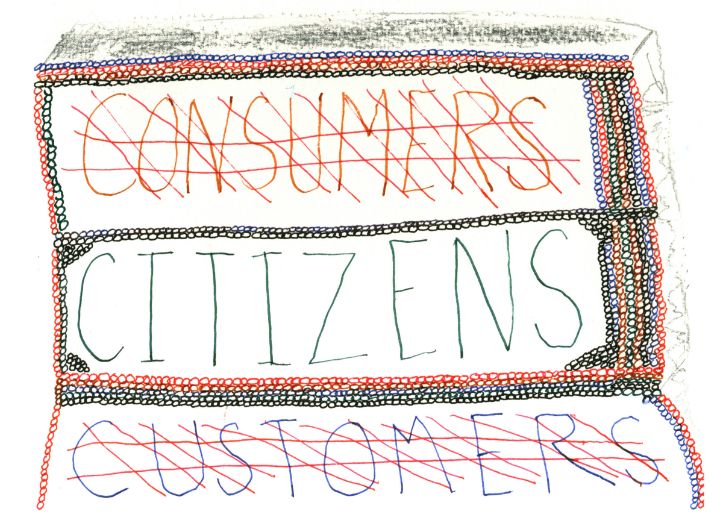 CONSUMERS
CITIZENS
CUSTOMERS